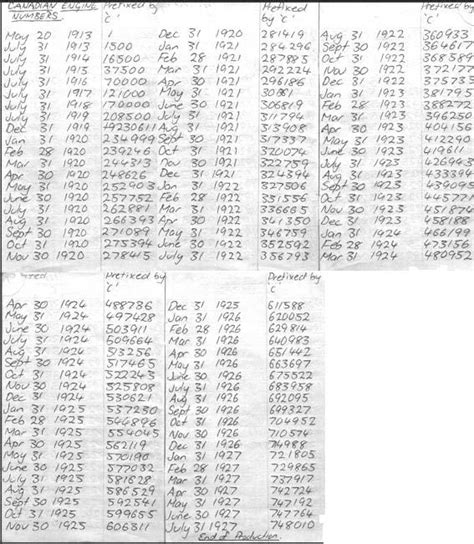 CANADIAN ENGINE NUMBERS.
Prefixed by
'C'
May 20 1913 1
July 31 1913 1500
July 31 1914 16500
July 31 1915 37500
July 31 1916 70000
July 31 1917 121000
July 31 1918 170000
July 31 1919 208500
Dec 31 1919 230611
Jan 31 1920 234999
Feb 28 1920 239246
Mar 31 1920 244313
Apr 30 1920 248626
May 31 1920 252903
June 30 1920 257752
July 31 1920 262881
Aug 31 1920 266393
Sept 30 1920 271089
Oct 31 1920 275394
Nov 30 1920 278415
Prefixed
by 'C'
Dec 31 1920 281419
Jan 31 1921 284296
Feb 28 1921 287885
Mar 31 1921 292224
Apr 30 1921 296186
May 31 1921
June 30 1921 306819
July 31 1921 311794
Aug 31 1921 313908
Sept 30 1921 317337
Oct 31 1921 320074
Nov 30 1921 322759
Dec 31 1921 324394
Jan 31 1922 327506
Feb 28 1922 331556
Mar 31 1922 336665
Apr 30 1922 341350
May 31 1922 346759
June 30 1922 352592
July 31 1922 356793
Prefixed
by 'C'
Aug 31 1922 360933
Sept 30 1922 364617
Oct 31 1922 368589
Nov 30 1922 372177
Dec 31 1922 375733
Jan 31 1923 381795
Feb 28 1923 388272
Mar 31 1923 396250
Apr 30 1923 404156
May 31 1923 412290
June 30 1923 419611
July 31 1923 426943
Aug 31 1923 433394
Sept 30 1923 439095
Oct 31 1923 445771
Nov 30 1923 451874
Dec 31 1923 458185
Jan 31 1924 466199
Feb 28 1924 473156
Mar 31 1924 480952
Prefixed by
'C'
Apr 30 1924 488736
May 31 1924 497428
June 30 1924 503911
July 31 1924 509664
Aug 31 1924 513256
Sept 30 1924 517465
Oct 31 1924 522243
Nov 30 1924 525808
Dec 31 1924 530621
Jan 31 1925 537250
Feb 28 1925 546896
Mar 31 1925 554045
Apr 30 1925 562119
May 31 1925 570190
June 30 1925 577032
July 31 1925 581828
Aug 31 1925 586529
Sept 30 1925 592541
Oct 31 1925 599655
Nov 30 1925 606311
Prefixed by
'C'
Dec 31 1925 611588
Jan 31 1926 620052
Feb 28 1926 629814
Mar 31 1926 640983
Apr 30 1926 651442
May 31 1926 663697
June 30 1926 675522
July 31 1926 683958
Aug 31 1926 692095
Sept 30 1926 699327
Oct 31 1926 704952
Nov 30 1926 710574
Dec 31 1926
Jan 31 1927 721805
Feb 28 1927 729865
Mar 31 1927 737917
Apr 30 1927 742724
May 31 1927 747192
June 30 1927 747764
July 31 1927 748010
End of Production.